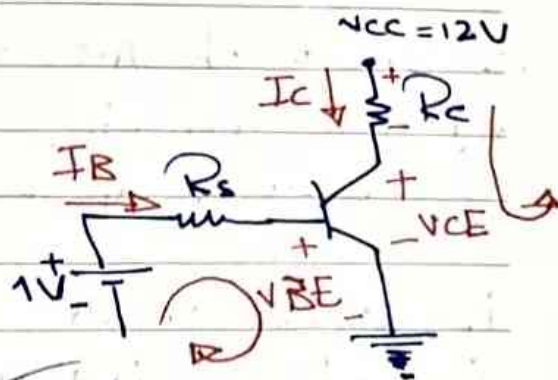 VCC = 12V
IC
+
RC
-
IB
RS
+
VCE
-
+
1V
-
+
VBE
-